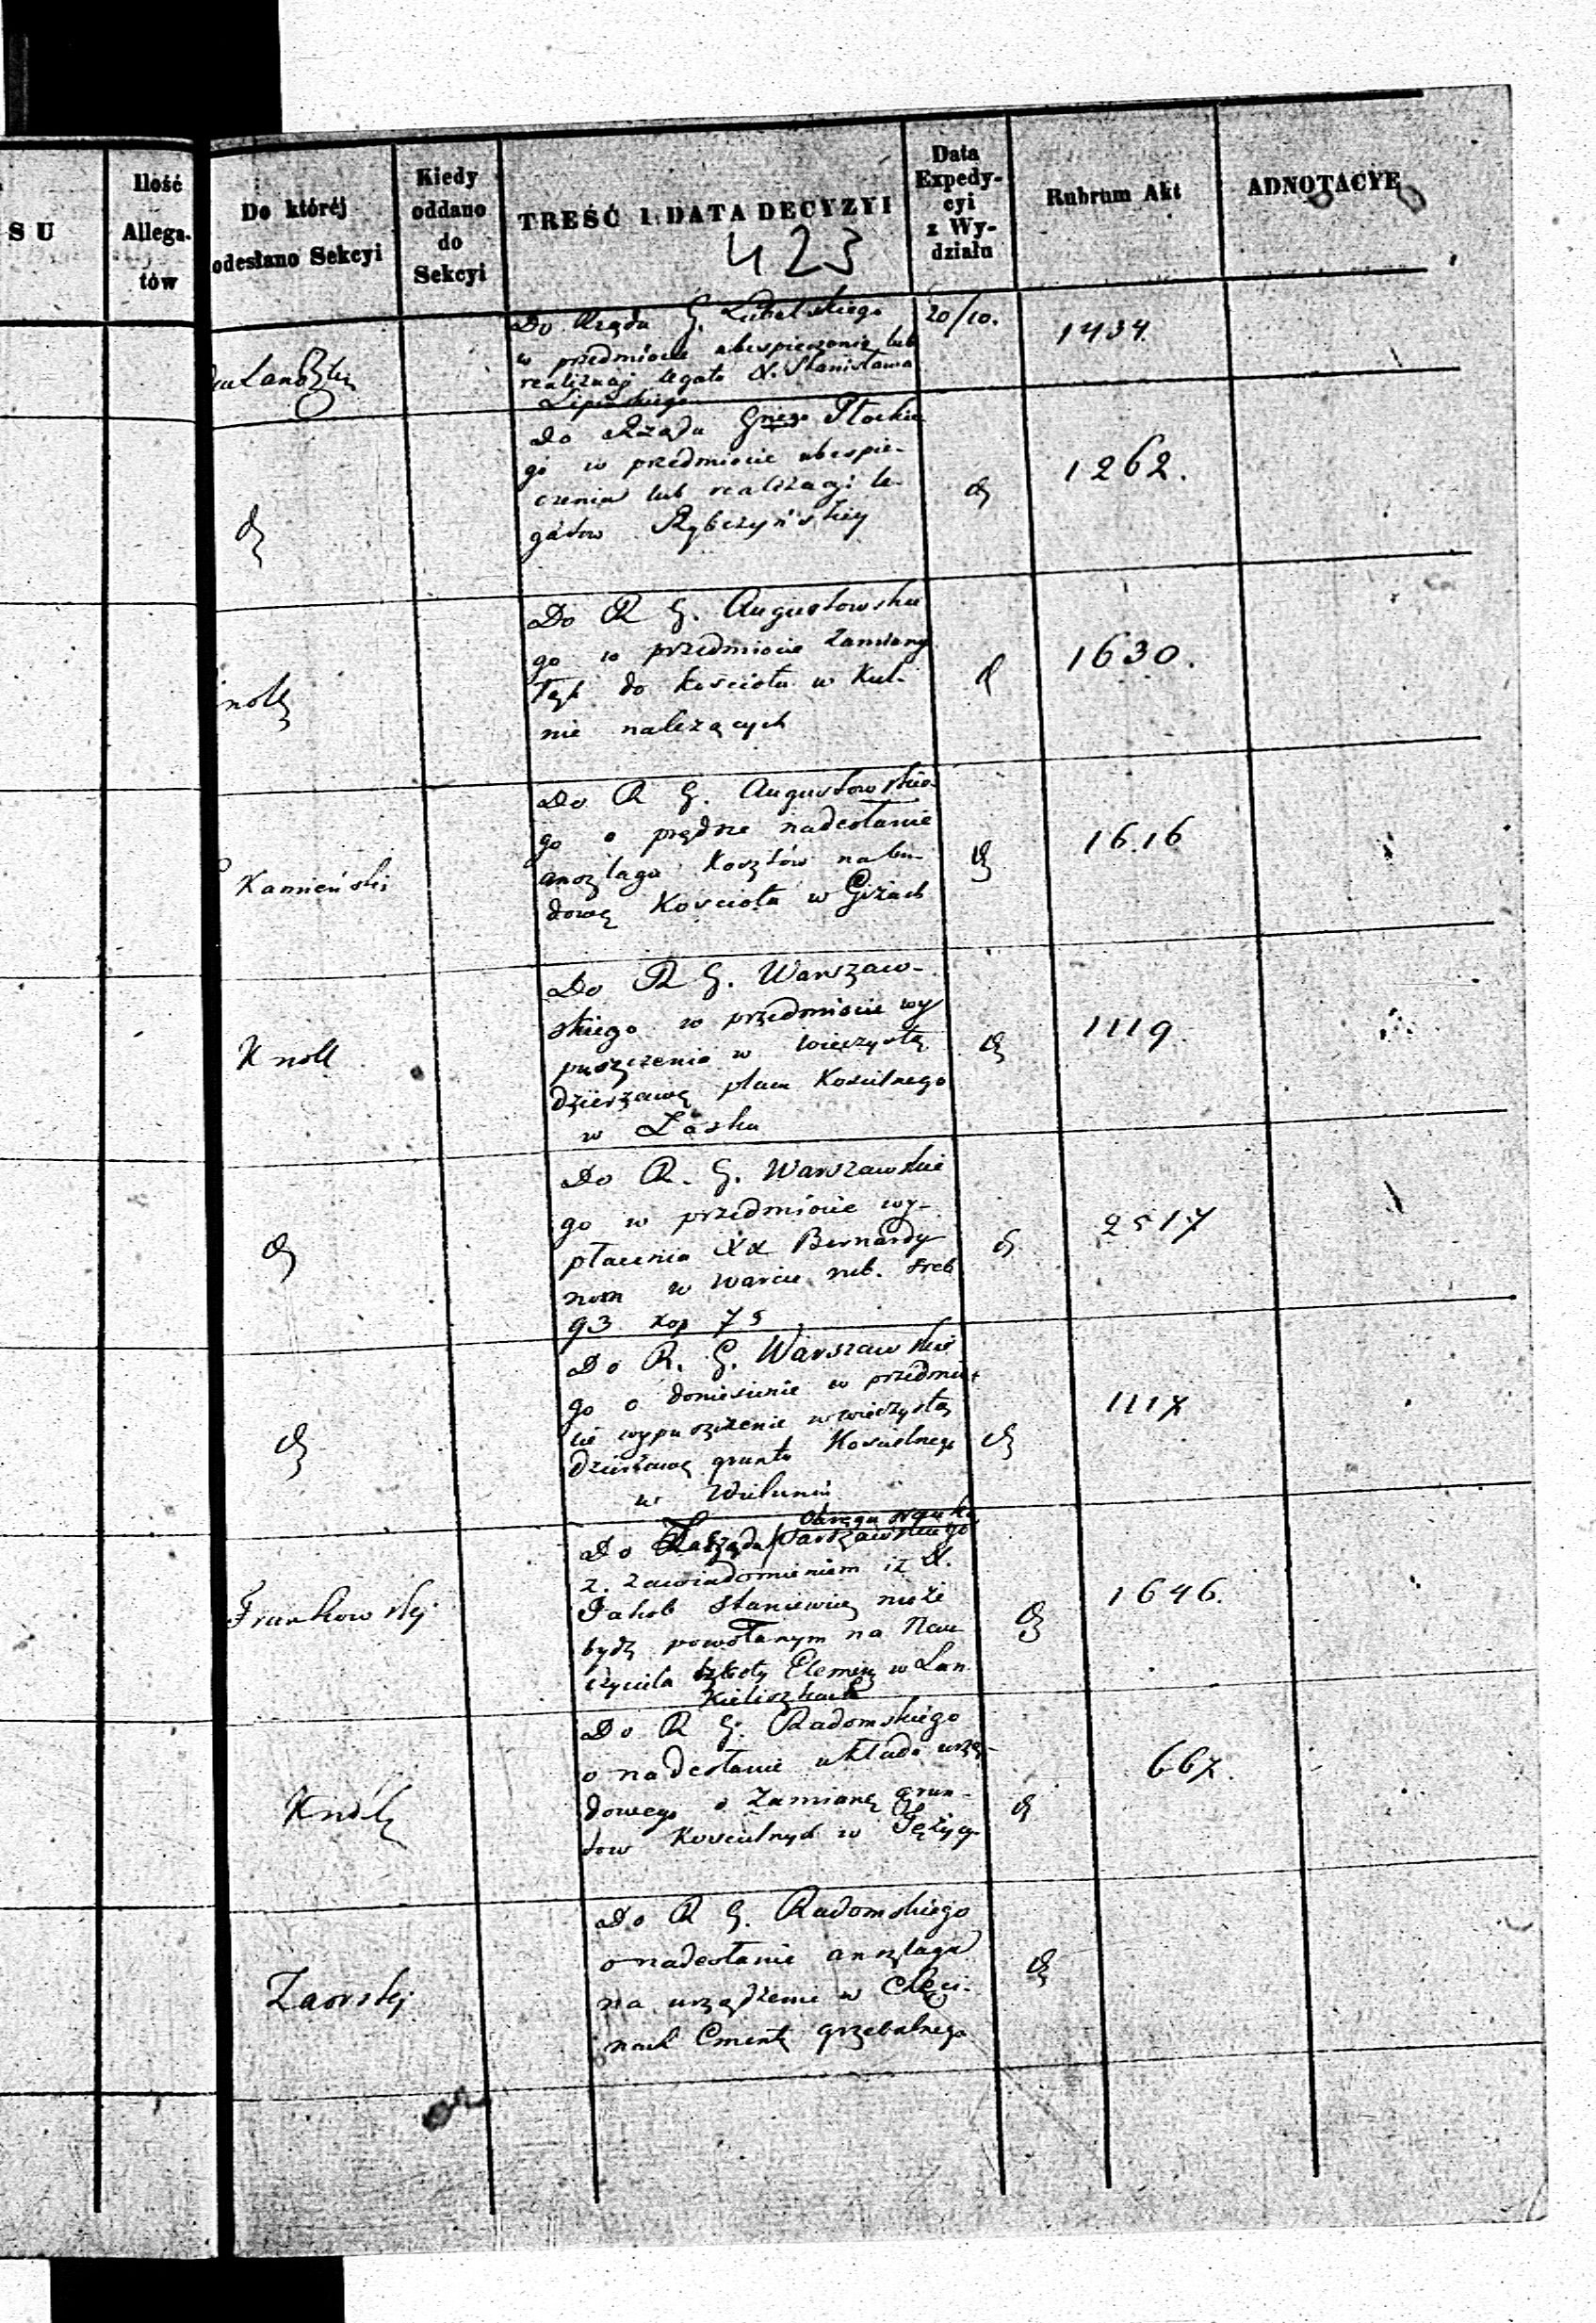 SU
Ilość
Allega-
tów
Do któréj
odesłano Sekcyi
Kiedy
oddano
do
Sekcyi
TREŚĆ I DATA DECYZYI
423
Data
Expedy-
cyi
z Wy-
działu
Rubrum Akt
ADNOTACYE
Do Rządu G. Lubelskiego
w przedmiocie ubespieczenia lub
realizacji legatu X. Stanisława
Lipińskiego
20/10.
1434.
Do Rządu Gnego Płockie
go w przedmiocie ubespie-
czenia lub realizacji le-
gatów Rybczyńskiej
1262.
Do R G. Augustowskie
go w przedmiocie zamiany
łąk do kościoła w Kul-
nie należących
1630.
Kamieński
Do R G. Augustowskie-
go o prędsze nadesłanie
anszlagu kosztów na bu-
dowę Kościoła w Giżach
1616
Knoll
Do R G. Warszaw-
skiego w przedmiocie wy
puszczenia w wieczystą
dzierżawę placu Kościelnego
w Łasku
1119.
Do R. G. Warszawskie
go w przedmiocie wy-
płacenia XX Bernardy
nom w Warcie rub. sreb.
93 kop 75
2517
Do R. G. Warszawskie
go o doniesienie w przedmio
cie wypuszczenia w wieczystą
dzierżawę gruntu Kościelnego
w Wieluniu
1117
Frankowskij
Okręgu Nauko
Do Zarządu Warszawskiego
z zawiadomieniem iż X.
Jakób Staniewicz może
bydź powołanym na Nau
czyciela szkoły Elemen w Lan
Kieliszkach
1646.
Do R G. Radomskiego
o nadesłanie układu urzę-
dowego o zamianę grun-
tów Kościelnych w
667.
Zaorskij
Do R G. Radomskiego
o nadesłanie anszlagu
na urządzenie w Chęci-
nach Cmentz grzebalnego